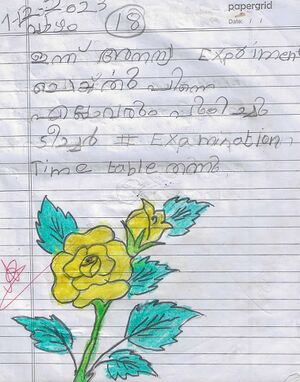 papergrid
Date: / /
1-12-2023
18
ഇന്ന് Expriment
ചെയ്തു പിന്നെ
എല്ലാവരും പഠിച്ചു
ടീച്ചർ # Examination
Time table തന്നു